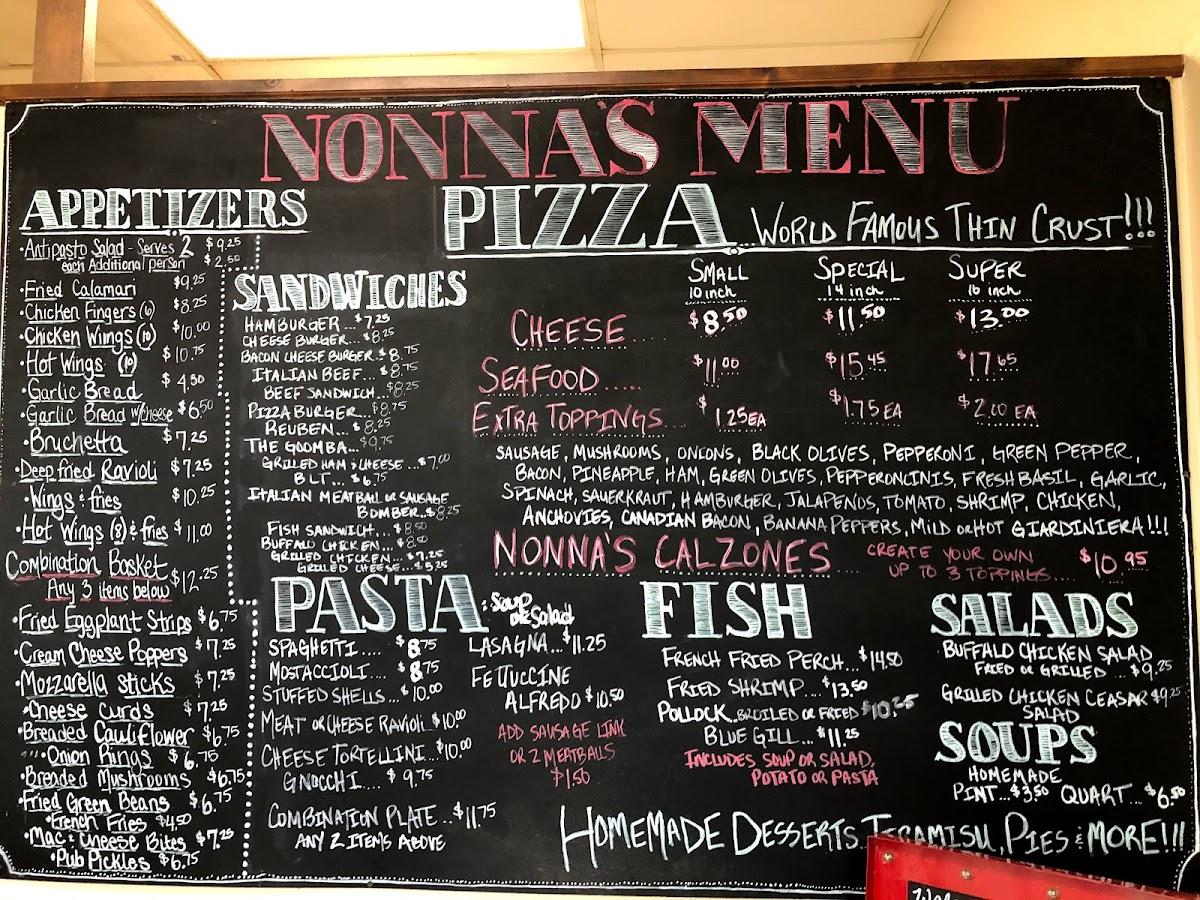 NONNA'S MENU
APPETIZERS
•Antipasto Salad - Serves 2 $9.25
each Additional person $2.50
•Fried Calamari $9.25
•Chicken Fingers (6) $8.25
•Chicken Wings (10) $10.00
•Hot Wings (10) $10.75
•Garlic Bread $4.50
•Garlic Bread w/cheese $6.50
•Bruchetta $7.25
•Deep fried Ravioli $7.25
•Wings & fries $10.25
•Hot Wings (8) & fries $11.00
Combination Basket
Any 3 items below $12.25
•Fried Eggplant Strips $6.75
•Cream Cheese Poppers $7.25
•Mozzarella sticks $7.25
•Cheese Curds $7.25
•Breaded Cauliflower $6.75
"" Onion Rings $6.75
•Breaded Mushrooms $6.75
•Fried Green Beans $6.75
•French Fries $4.50
•Mac & Cheese Bites $7.25
•Pub Pickles $6.75
SANDWICHES
HAMBURGER...$7.25
CHEESE BURGER...$8.25
BACON CHEESE BURGER..$8.75
ITALIAN BEEF...$8.75
BEEF SANDWICH...$8.25
PIZZA BURGER...$8.75
REUBEN...$8.25
THE GOOMBA...$9.75
GRILLED HAM & CHEESE...$7.00
BLT...$6.75
ITALIAN MEATBALL OR SAUSAGE
BOMBER..$8.25
FISH SANDWICH...$8.50
BUFFALO CHICKEN...$8.50
GRILLED CHICKEN...$7.25
GRILLED CHEESE...$5.25
PIZZA...WORLD FAMOUS THIN CRUST!!!
SMALL SPECIAL SUPER
10 inch 14 inch 16 inch
CHEESE..... $8.50 $11.50 $13.00
SEAFOOD..... $11.00 $15.45 $17.65
EXTRA TOPPINGS.... $1.25EA $1.75 EA $2.00 EA
SAUSAGE, MUSHROOMS, ONIONS, BLACK OLIVES, PEPPERONI, GREEN PEPPER,
BACON, PINEAPPLE, HAM, GREEN OLIVES, PEPPERONCINIS, FRESH BASIL, GARLIC,
SPINACH, SAUERKRAUT, HAMBURGER, JALAPEÑOS, TOMATO, SHRIMP, CHICKEN,
ANCHOVIES, CANADIAN BACON, BANANA PEPPERS, MILD OR HOT GIARDINIERA!!!
NONNA'S CALZONES CREATE YOUR OWN
UP TO 3 TOPPINGS.... $10.95
PASTA : Soup
OR Salad
SPAGHETTI.... $8.75
MOSTACCIOLI.... $8.75
STUFFED SHELLS... $10.00
MEAT OR CHEESE RAVIOLI..$10.00
CHEESE TORTELLINI...$10.00
GNOCCHI.... $9.75
COMBINATION PLATE...$11.75
ANY 2 ITEMS ABOVE
LASAGNA...$11.25
FETTUCCINE
ALFREDO $10.50
ADD SAUSAGE LINK
OR 2 MEATBALLS
$1.50
FISH
FRENCH FRIED PERCH...$14.50
FRIED SHRIMP....$13.50
POLLOCK..BROILED OR FRIED $10.25
BLUE GILL...$11.25
INCLUDES SOUP OR SALAD,
POTATO OR PASTA
SALADS
BUFFALO CHICKEN SALAD
FRIED OR GRILLED...$9.25
GRILLED CHICKEN CEASAR $9.25
SALAD
SOUPS
HOMEMADE
PINT...$3.50 QUART...$6.50
HOMEMADE DESSERTS...TERAMISU, PIES & MORE!!!